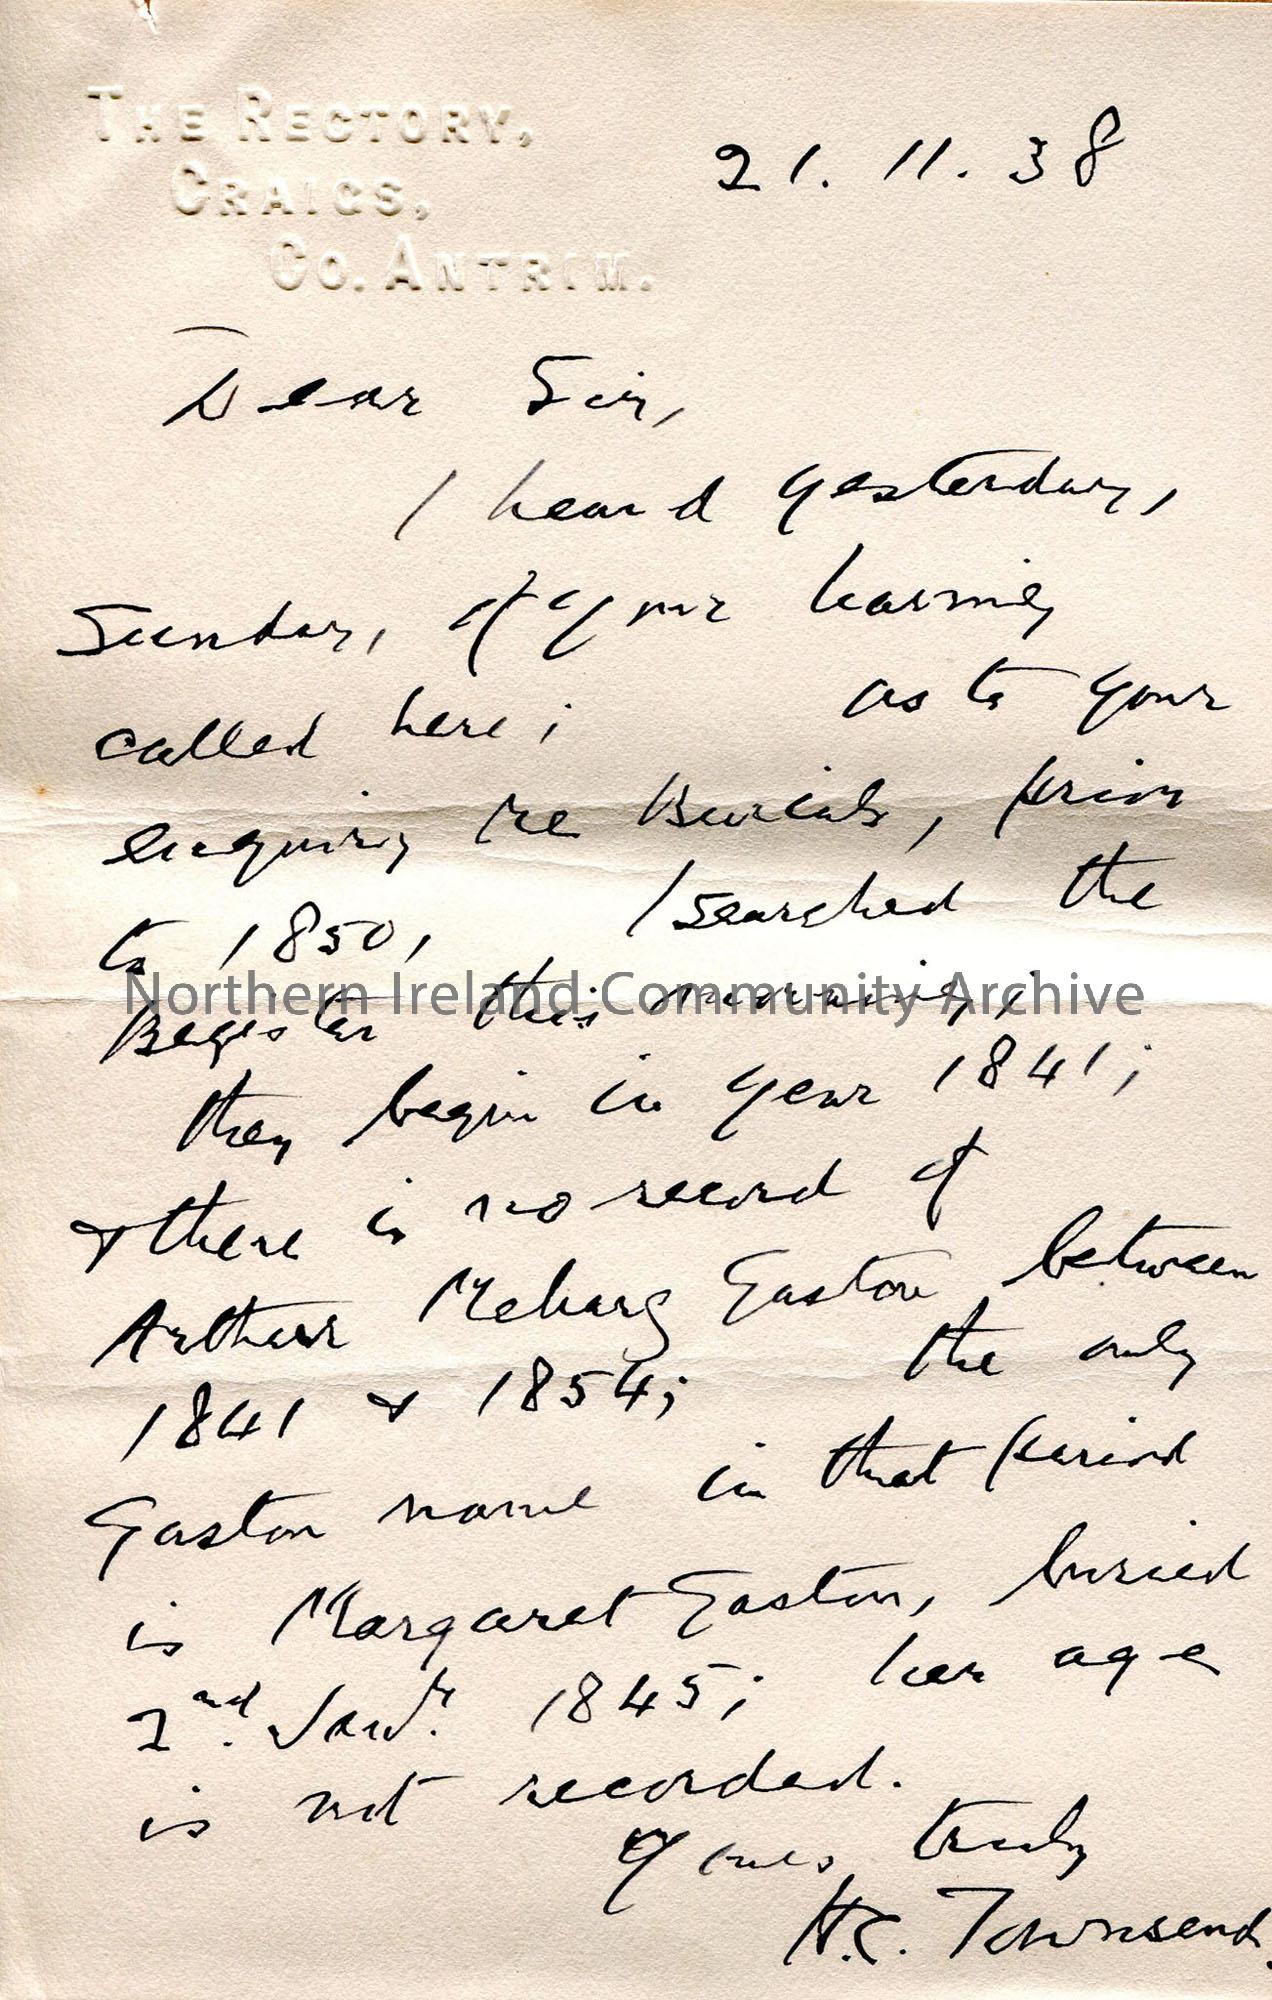 THE RECTORY,
CRAIGS,
CO. ANTRIM.
21. 11. 38
Dear Sir,
I heard yesterday,
Sunday, of your having
called here; as to your
enquiry re Burials, prior
to 1850, I searched the
Register this morning;
they begin in year 1841;
& there is no record of
Arthur Meharg Easton between
1841 & 1854; the only
Easton name in that period
is Margaret Easton, buried
2nd. Jany. 1845; her age
is not recorded.
Yours truly
H.C. Townsend.
Northern Ireland Community Archive